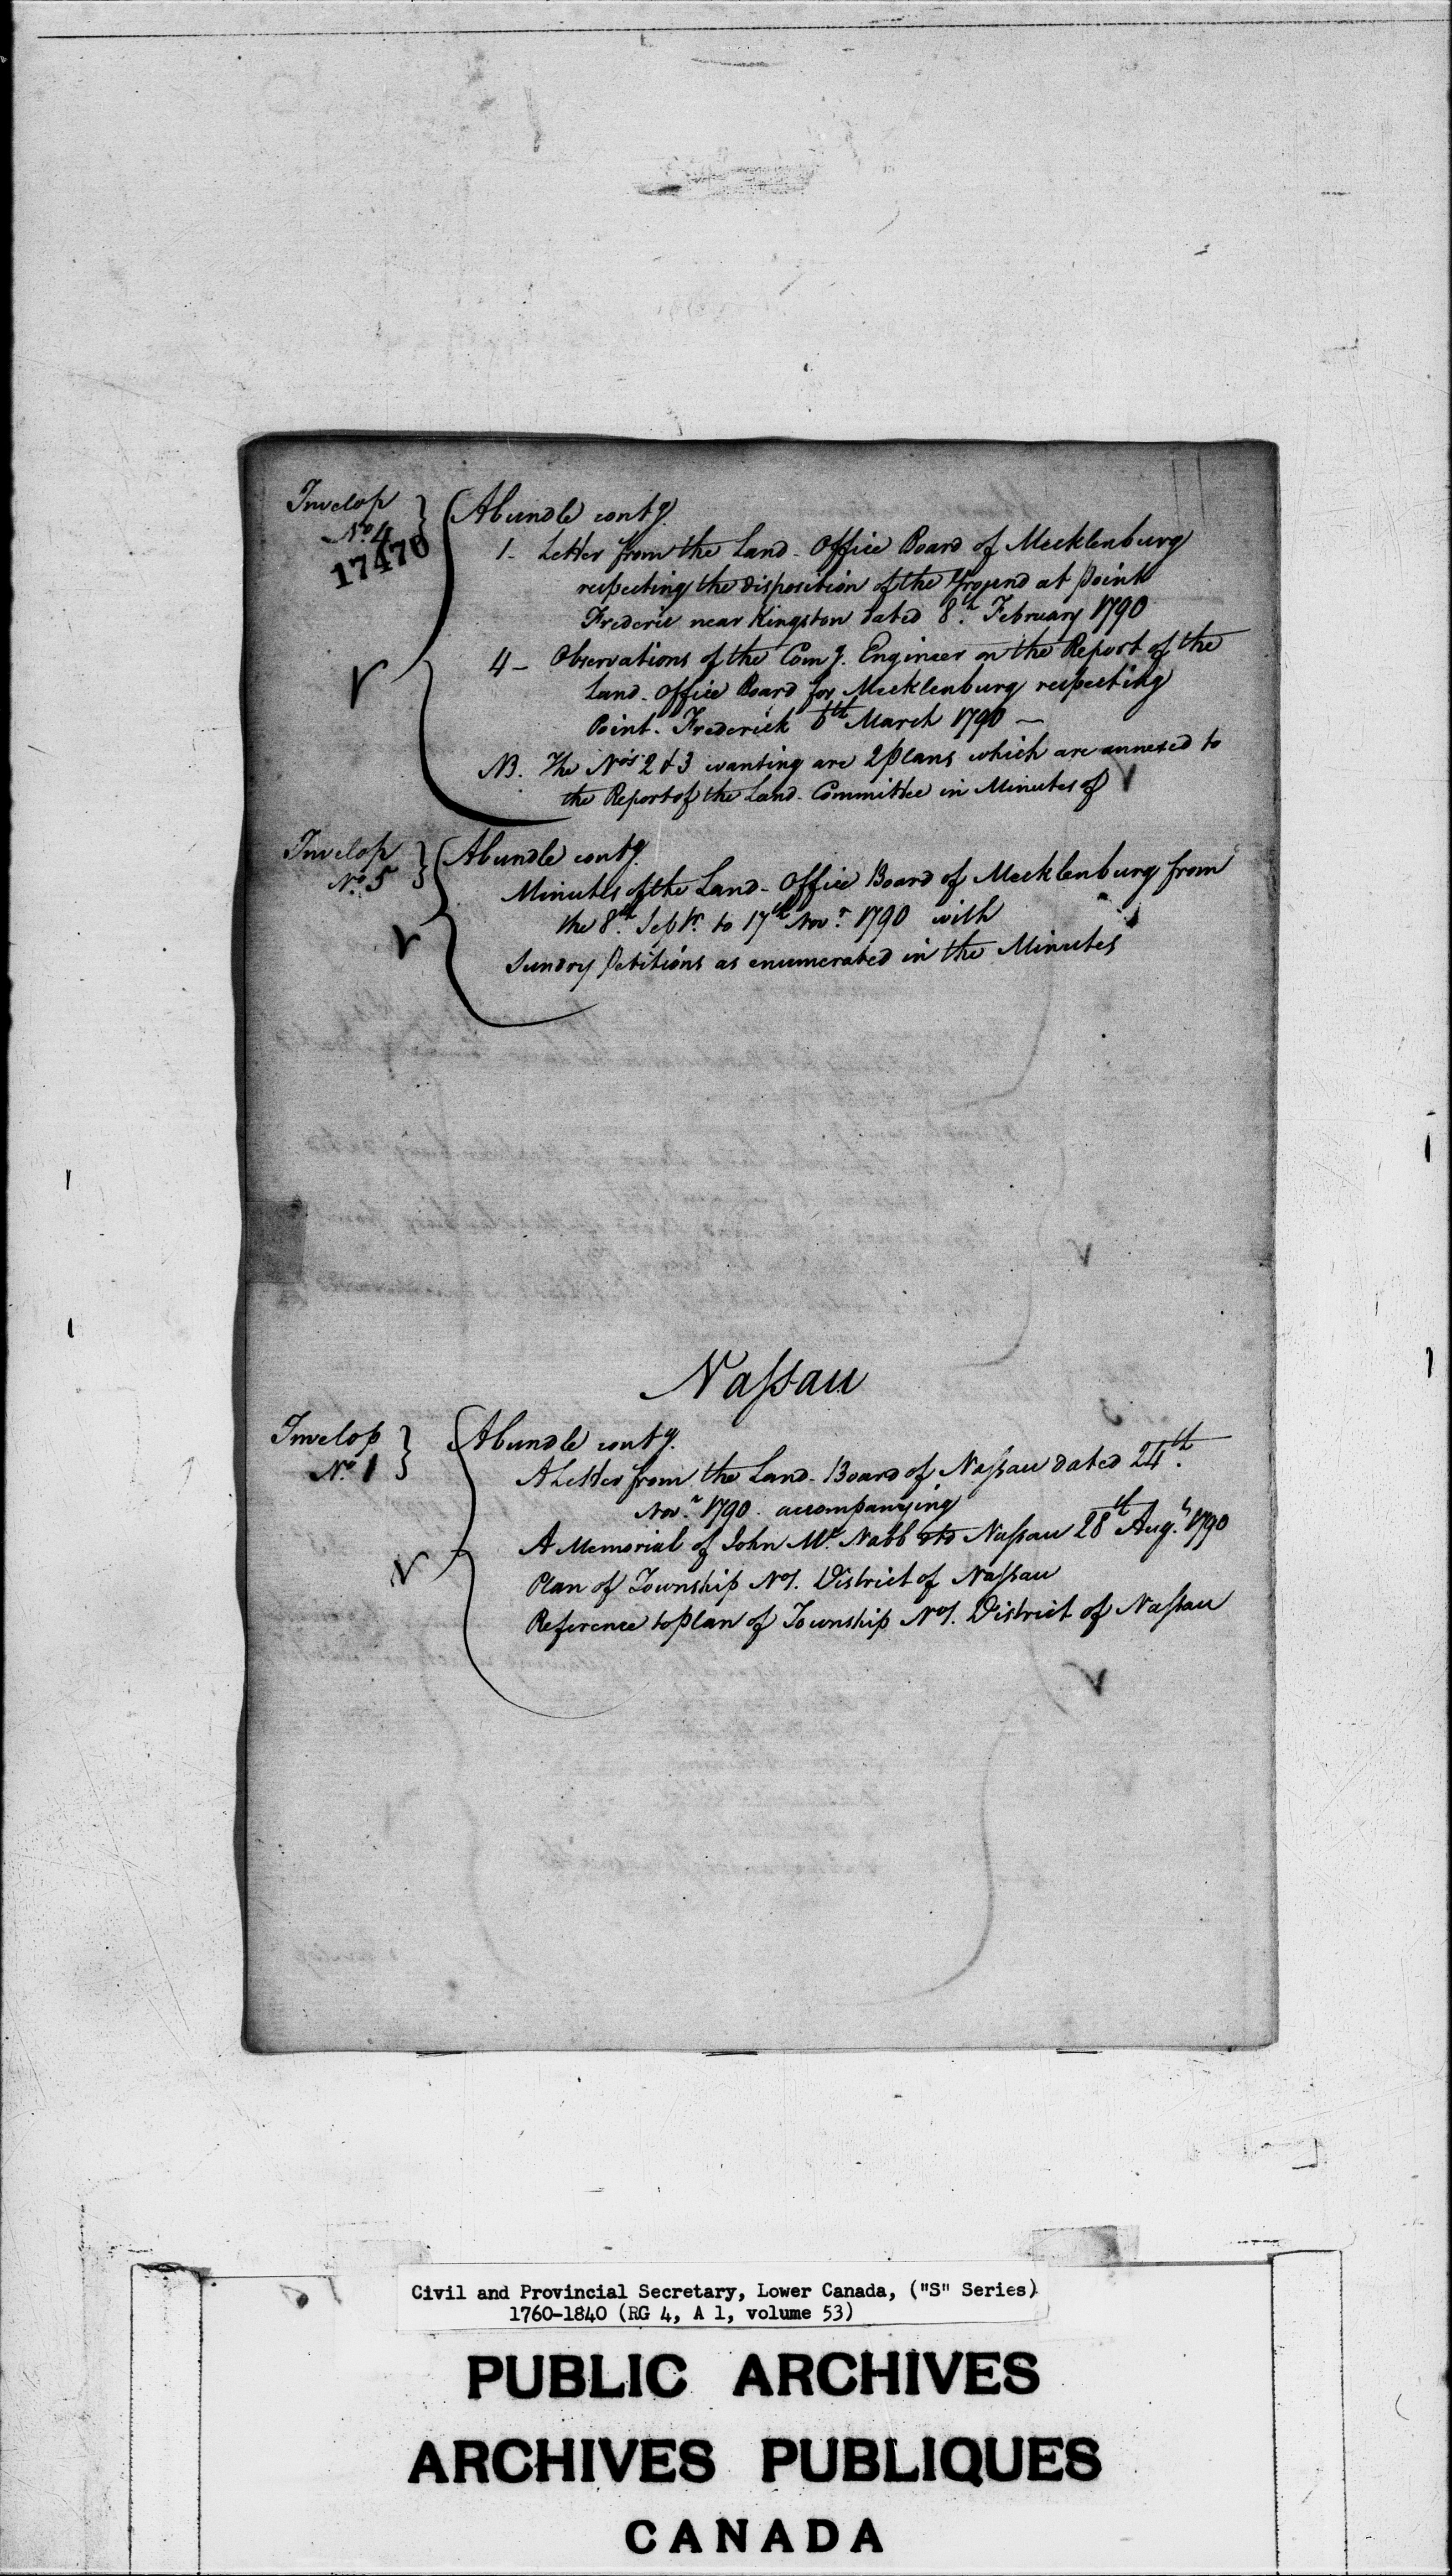 Invelop
No. 4
17470
A bundle contg.
1- Letter from the Land-Office Board of Mecklenburg
respecting the disposition of the Ground at Point
Frederic near Kingston dated 8th. February 1790
4- Observations of the Comg. Engineer on the Report of the
Land-Office Board for Mecklenburg respecting
Point-Frederick 6th March 1790 -
NB. The Nos. 2 & 3 wanting are 2 plans which are annexed to
the Report of the Land-Committee in Minutes of
Invelop
No. 5
A bundle contg.
Minutes of the Land-Office Board of Mecklenburg from
the 8th. Septr. to 17th Novr. 1790 with
Sundry Petitions as enumerated in the Minutes
Nassau
Invelop
No. 1
A bundle contg.
A Letter from the Land-Board of Nassau dated 24th.
Novr. 1790. accompanying
A Memorial of John Mc. Nabb Nassau 28th Augt. 1790
Plan of Township No1. District of Nassau
Reference to plan of Township No1. District of Nassau
Civil and Provincial Secretary, Lower Canada, ("S" Series)
1760-1840 (RG 4, A 1, volume 53)
PUBLIC ARCHIVES
ARCHIVES PUBLIQUES
CANADA